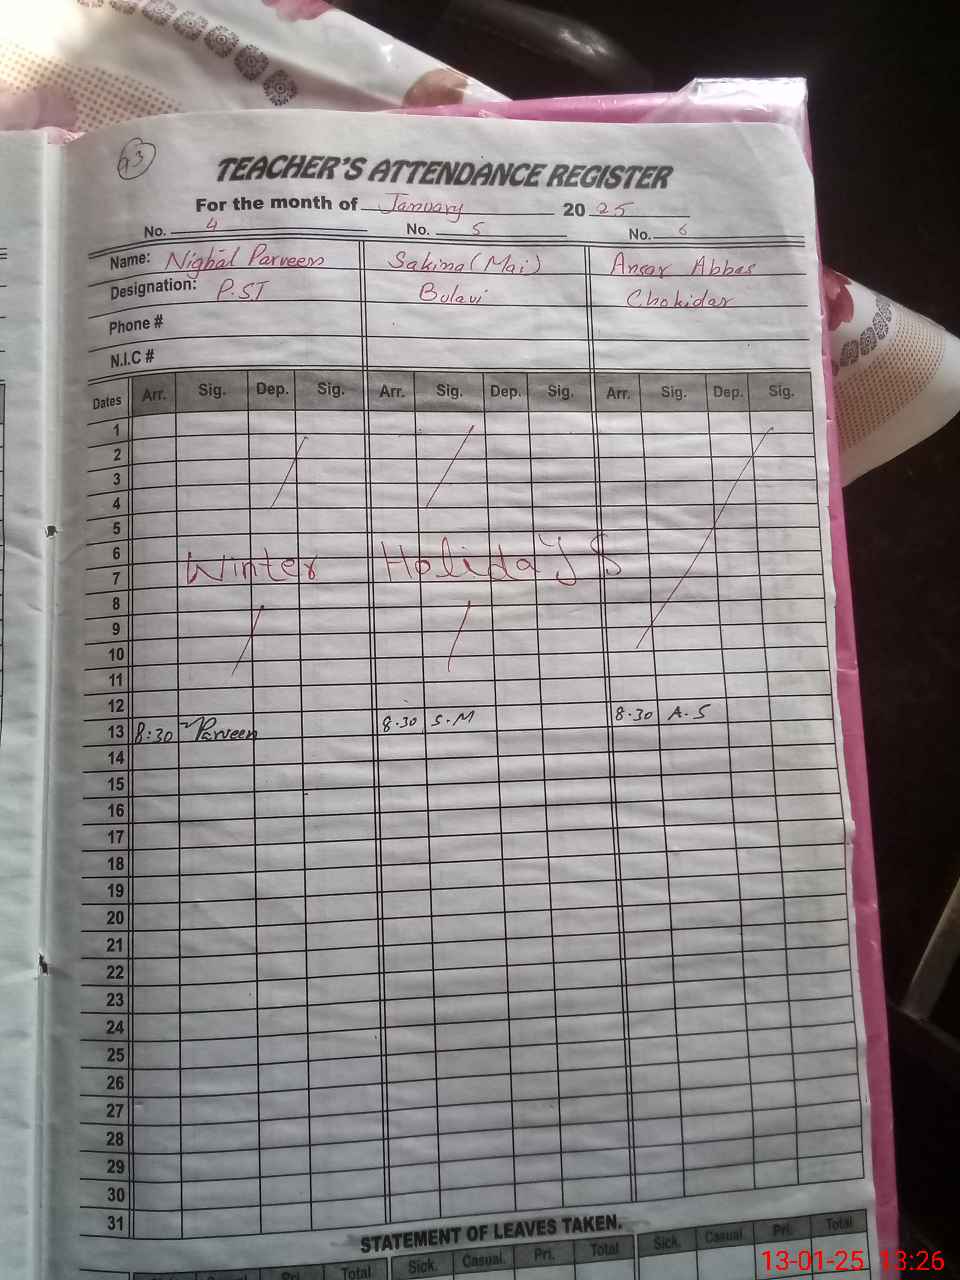 43
TEACHER'S ATTENDANCE REGISTER
For the month of January 2025
No. 4 No. 5 No. 6
Name: Nighal Parveen Sakina (Mai) Ansar Abbas
Designation: P.ST Bulavi Chokidar
Phone #
N.I.C #
Dates Arr. Sig. Dep. Sig. Arr. Sig. Dep. Sig. Arr. Sig. Dep. Sig.
1
2
3
4
5
6
Winter Holiday's
7
8
9
10
11
12
13 8:30 Parveen 8.30 S.M 8.30 A.S
14
15
16
17
18
19
20
21
22
23
24
25
26
27
28
29
30
31
STATEMENT OF LEAVES TAKEN.
Sick. Casual Pri. Total Sick. Casual. Pri. Total Sick. Casual Pri. Total
13-01-25 13:26